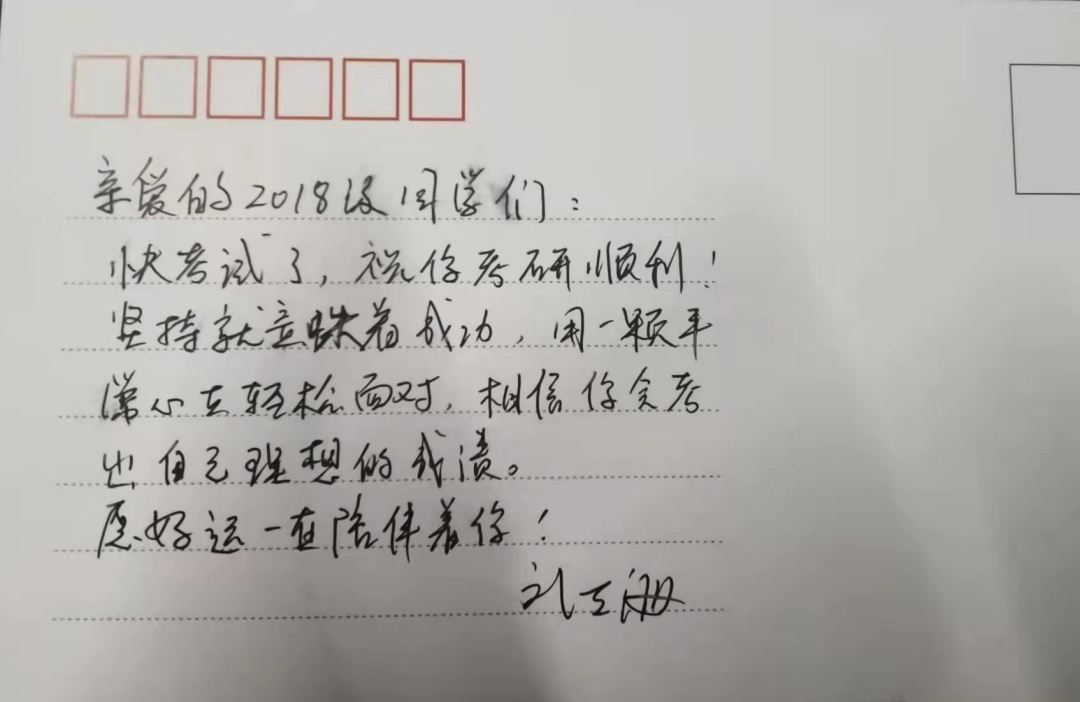 亲爱的2018级同学们：
快考试了，祝你考研顺利！
坚持就意味着成功，用一颗平
常心去轻松面对，相信你会考
出自己理想的成绩。
愿好运一直陪伴着你！